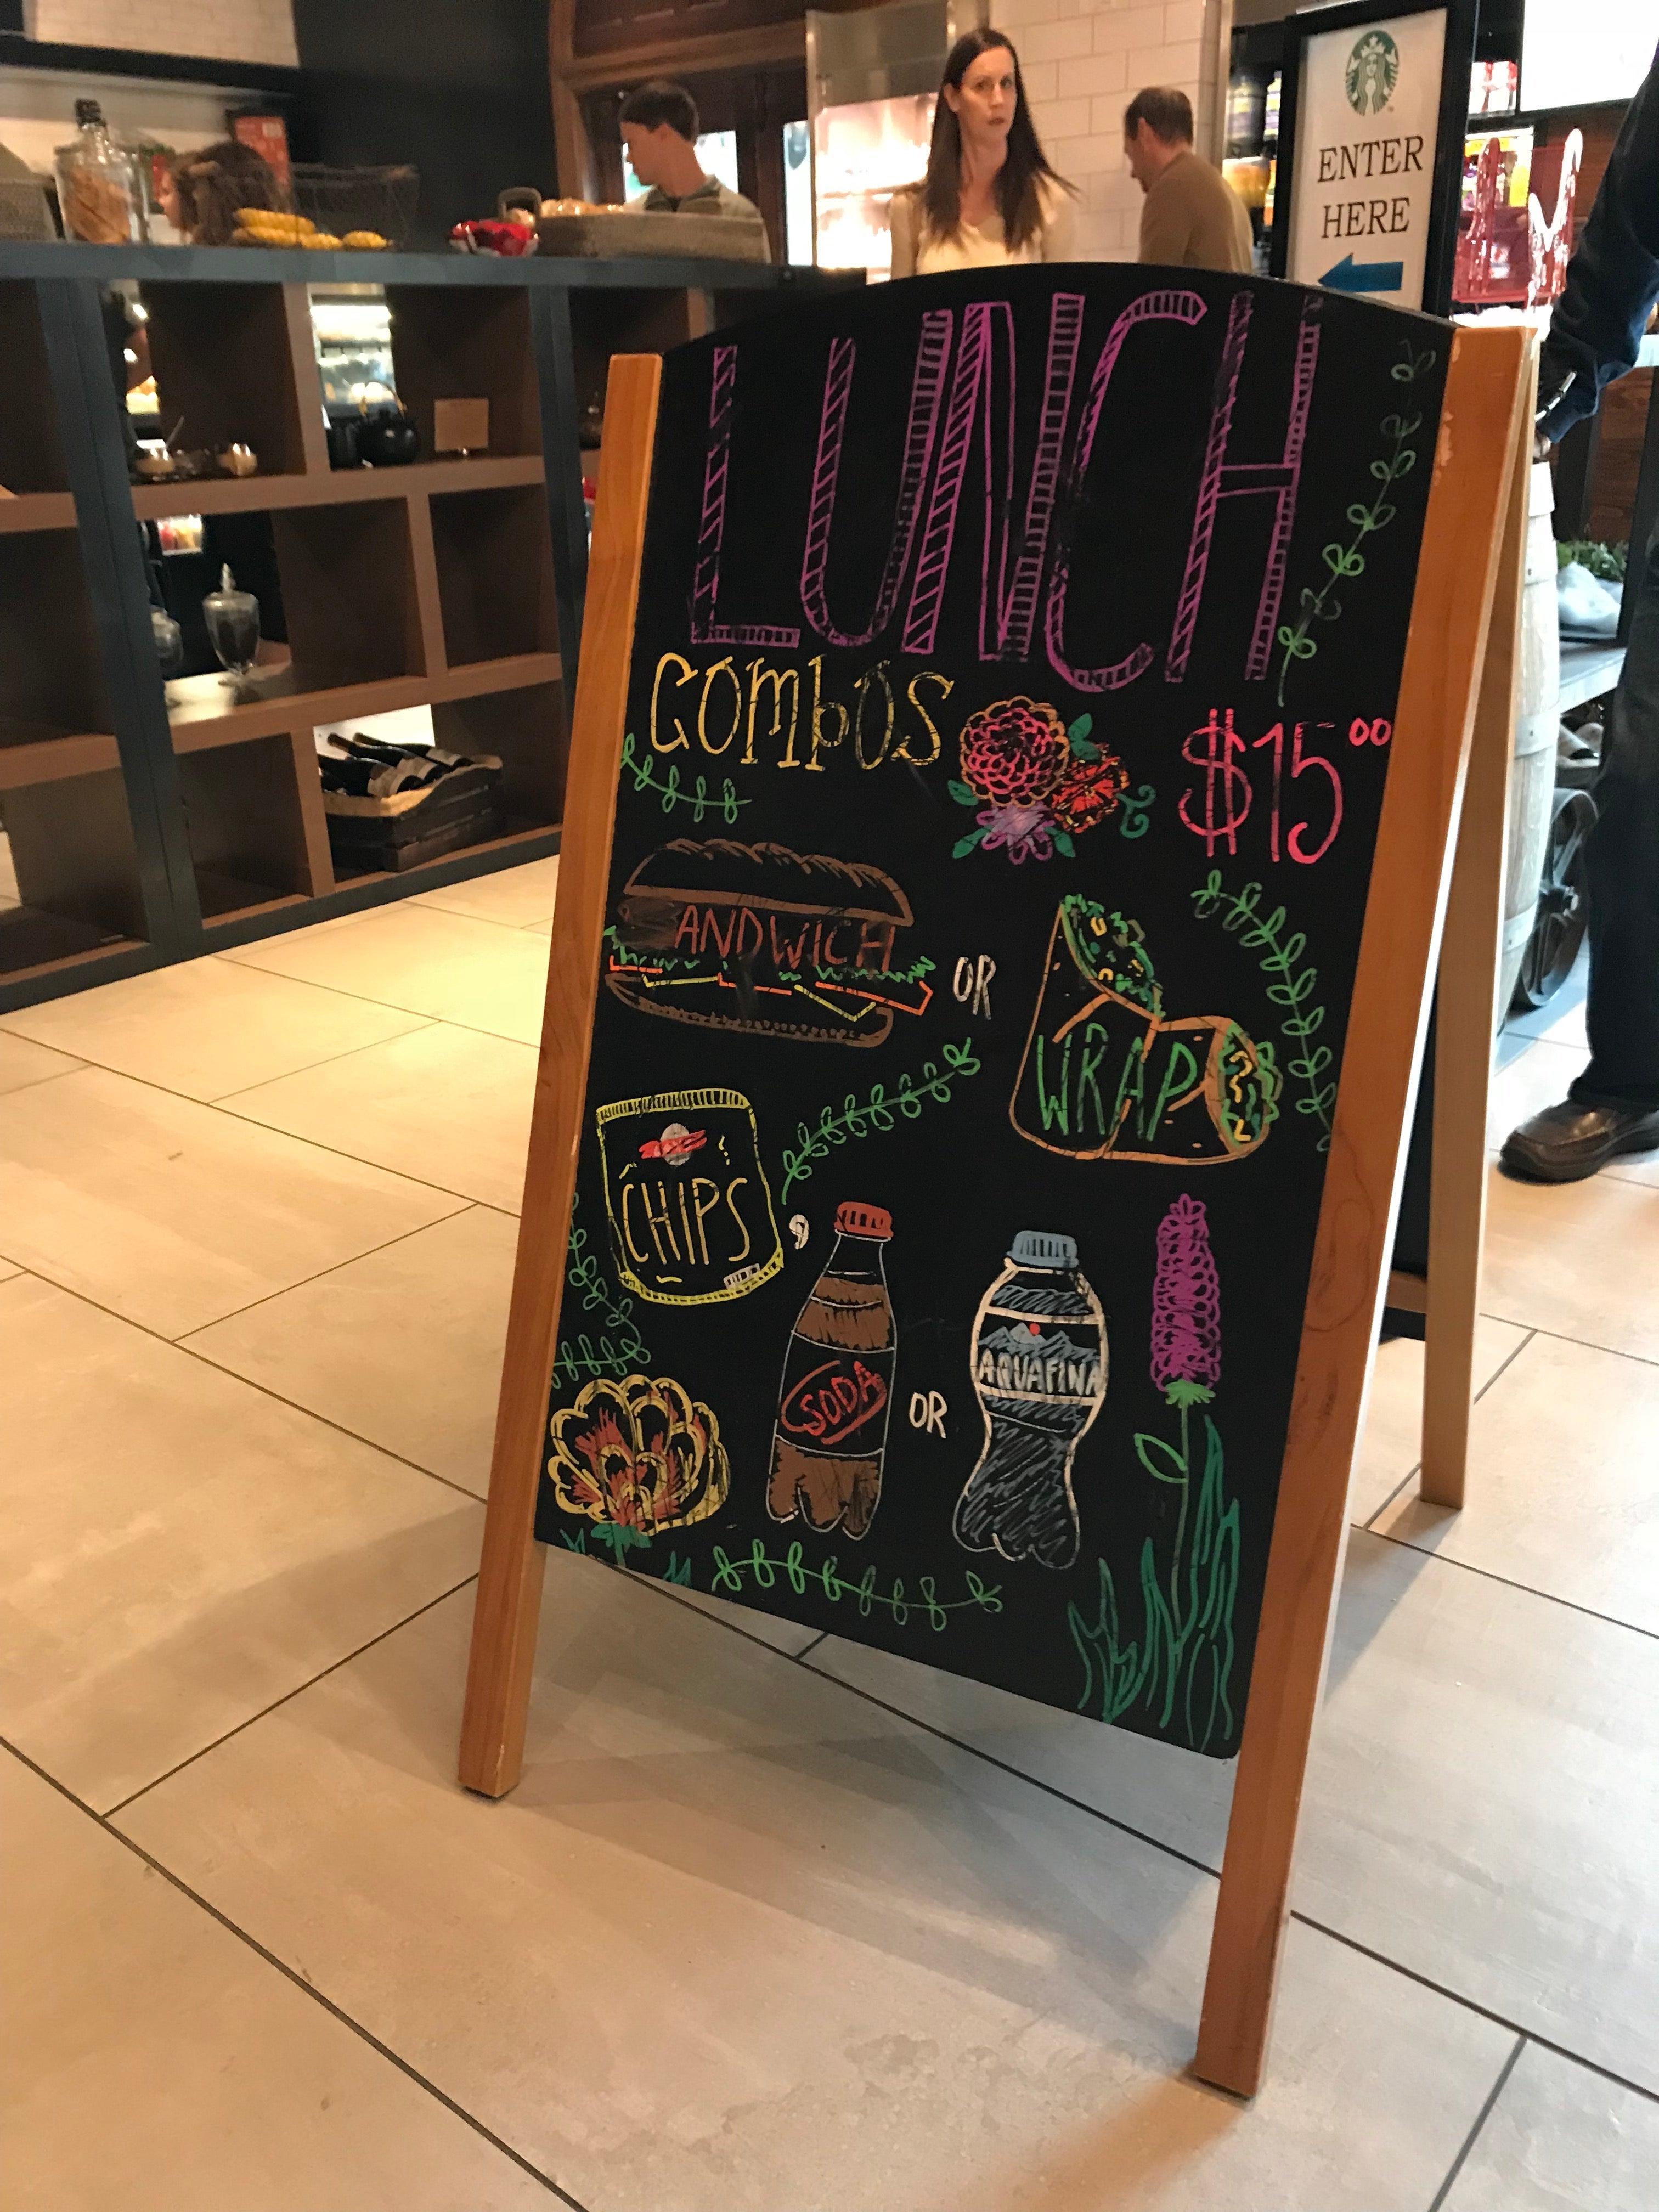 ENTER
HERE
LUNCH
COMBOS $15.00
ANDWICH OR WRAP
CHIPS , SODA OR AQUAFINA